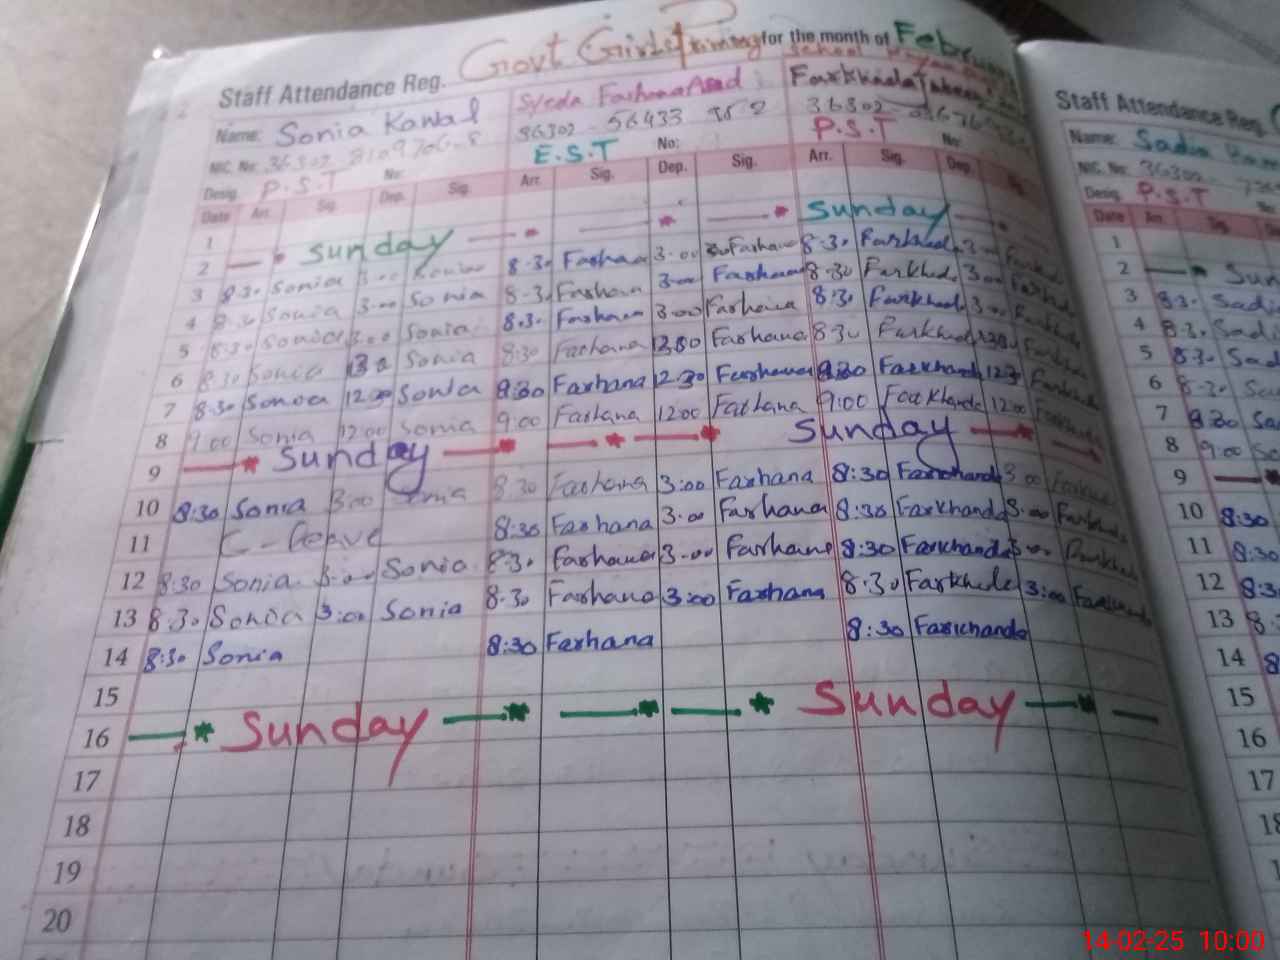 Staff Attendance Reg. Govt Girls Primary for the month of
School
Name: Sonia Kawal Syeda Farhana Asad Farkhanda
NIC. No: 36302 36302 - 56433 36302
Desig. P.S.T No: E.S.T No: P.S.T No:
Date Arr. Sig. Dep. Sig. Arr. Sig. Dep. Sig. Arr. Sig. Dep. Sig.
1
2 Sunday Sunday
3 8:30 Sonia 3:00 Sonia 8:30 Farhana 3:00 Farhana 8:30 Farkhada 3:00
4 8:30 Sonia 3:00 Sonia 8:30 Farhana 3:00 Farhana 8:30 Farkhada 3:00
5 8:30 Sonia 3:00 Sonia 8:30 Farhana 3:00 Farhana 8:30 Farkhada 3:00
6 8:30 Sonia Sonia 8:30 Farhana Farhana 8:30 Farkhada
7 8:30 Sonia 12:30 Sonia 8:30 Farhana 12:30 Farhana 8:30 Farkhanda 12:30
8 9:00 Sonia 12:00 Sonia 9:00 Farhana 12:00 Farhana 9:00 Farkhanda 12:00
9 Sunday Sunday
10 8:30 Sonia 3:00 Sonia 8:30 Farhana 3:00 Farhana 8:30 Farkhanda 3:00
11 C-Leave 8:30 Farhana 3:00 Farhana 8:30 Farkhanda 3:00
12 8:30 Sonia 3:00 Sonia 8:30 Farhana 3:00 Farhana 8:30 Farkhanda 3:00
13 8:30 Sonia 3:00 Sonia 8:30 Farhana 3:00 Farhana 8:30 Farkhande 3:00
14 8:30 Sonia 8:30 Farhana 8:30 Farkhanda
15
16 Sunday Sunday
17
18
19
20
Staff Attendance Reg.
Name: Sadia
NIC. No: 36302
Desig. P.S.T
Date Arr. Sig.
1
2 Sun
3 8:30 Sadi
4 8:30 Sadi
5 8:30 Sad
6 8:30
7 Sa
8 9:00
9
10 8:30
11 8:30
12 8:3
13 8:
14 8
15
16
17
14-02-25 10:00